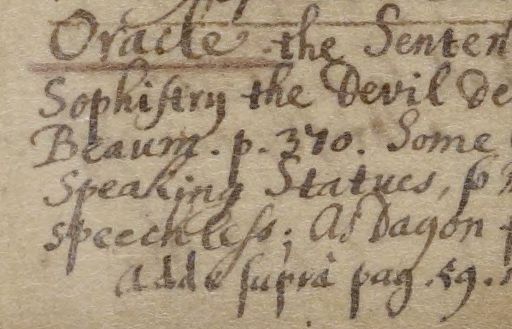 Oracle the Senten
Sophistry the Devil de
Beaum. p. 370. Some
Speaking Statues, p
speechless; As Dagon f
Adde suprà pag. 59.